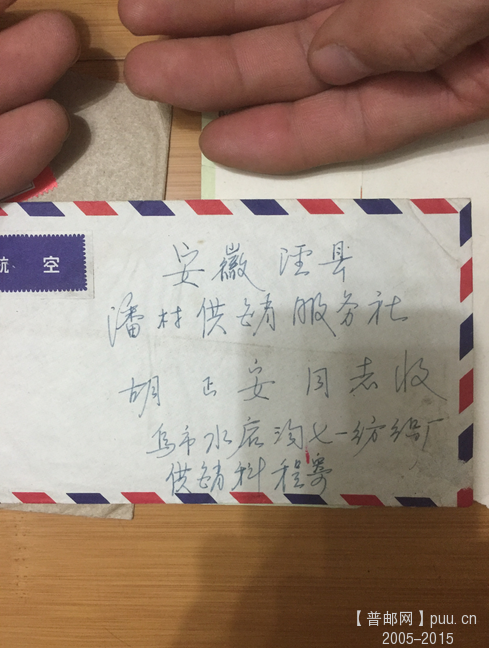 航空
安徽泾县
潘村供销服务社
胡正安同志收
乌市水磨沟七一纺织厂
供销科程寄
【普邮网】puu.cn
2005-2015